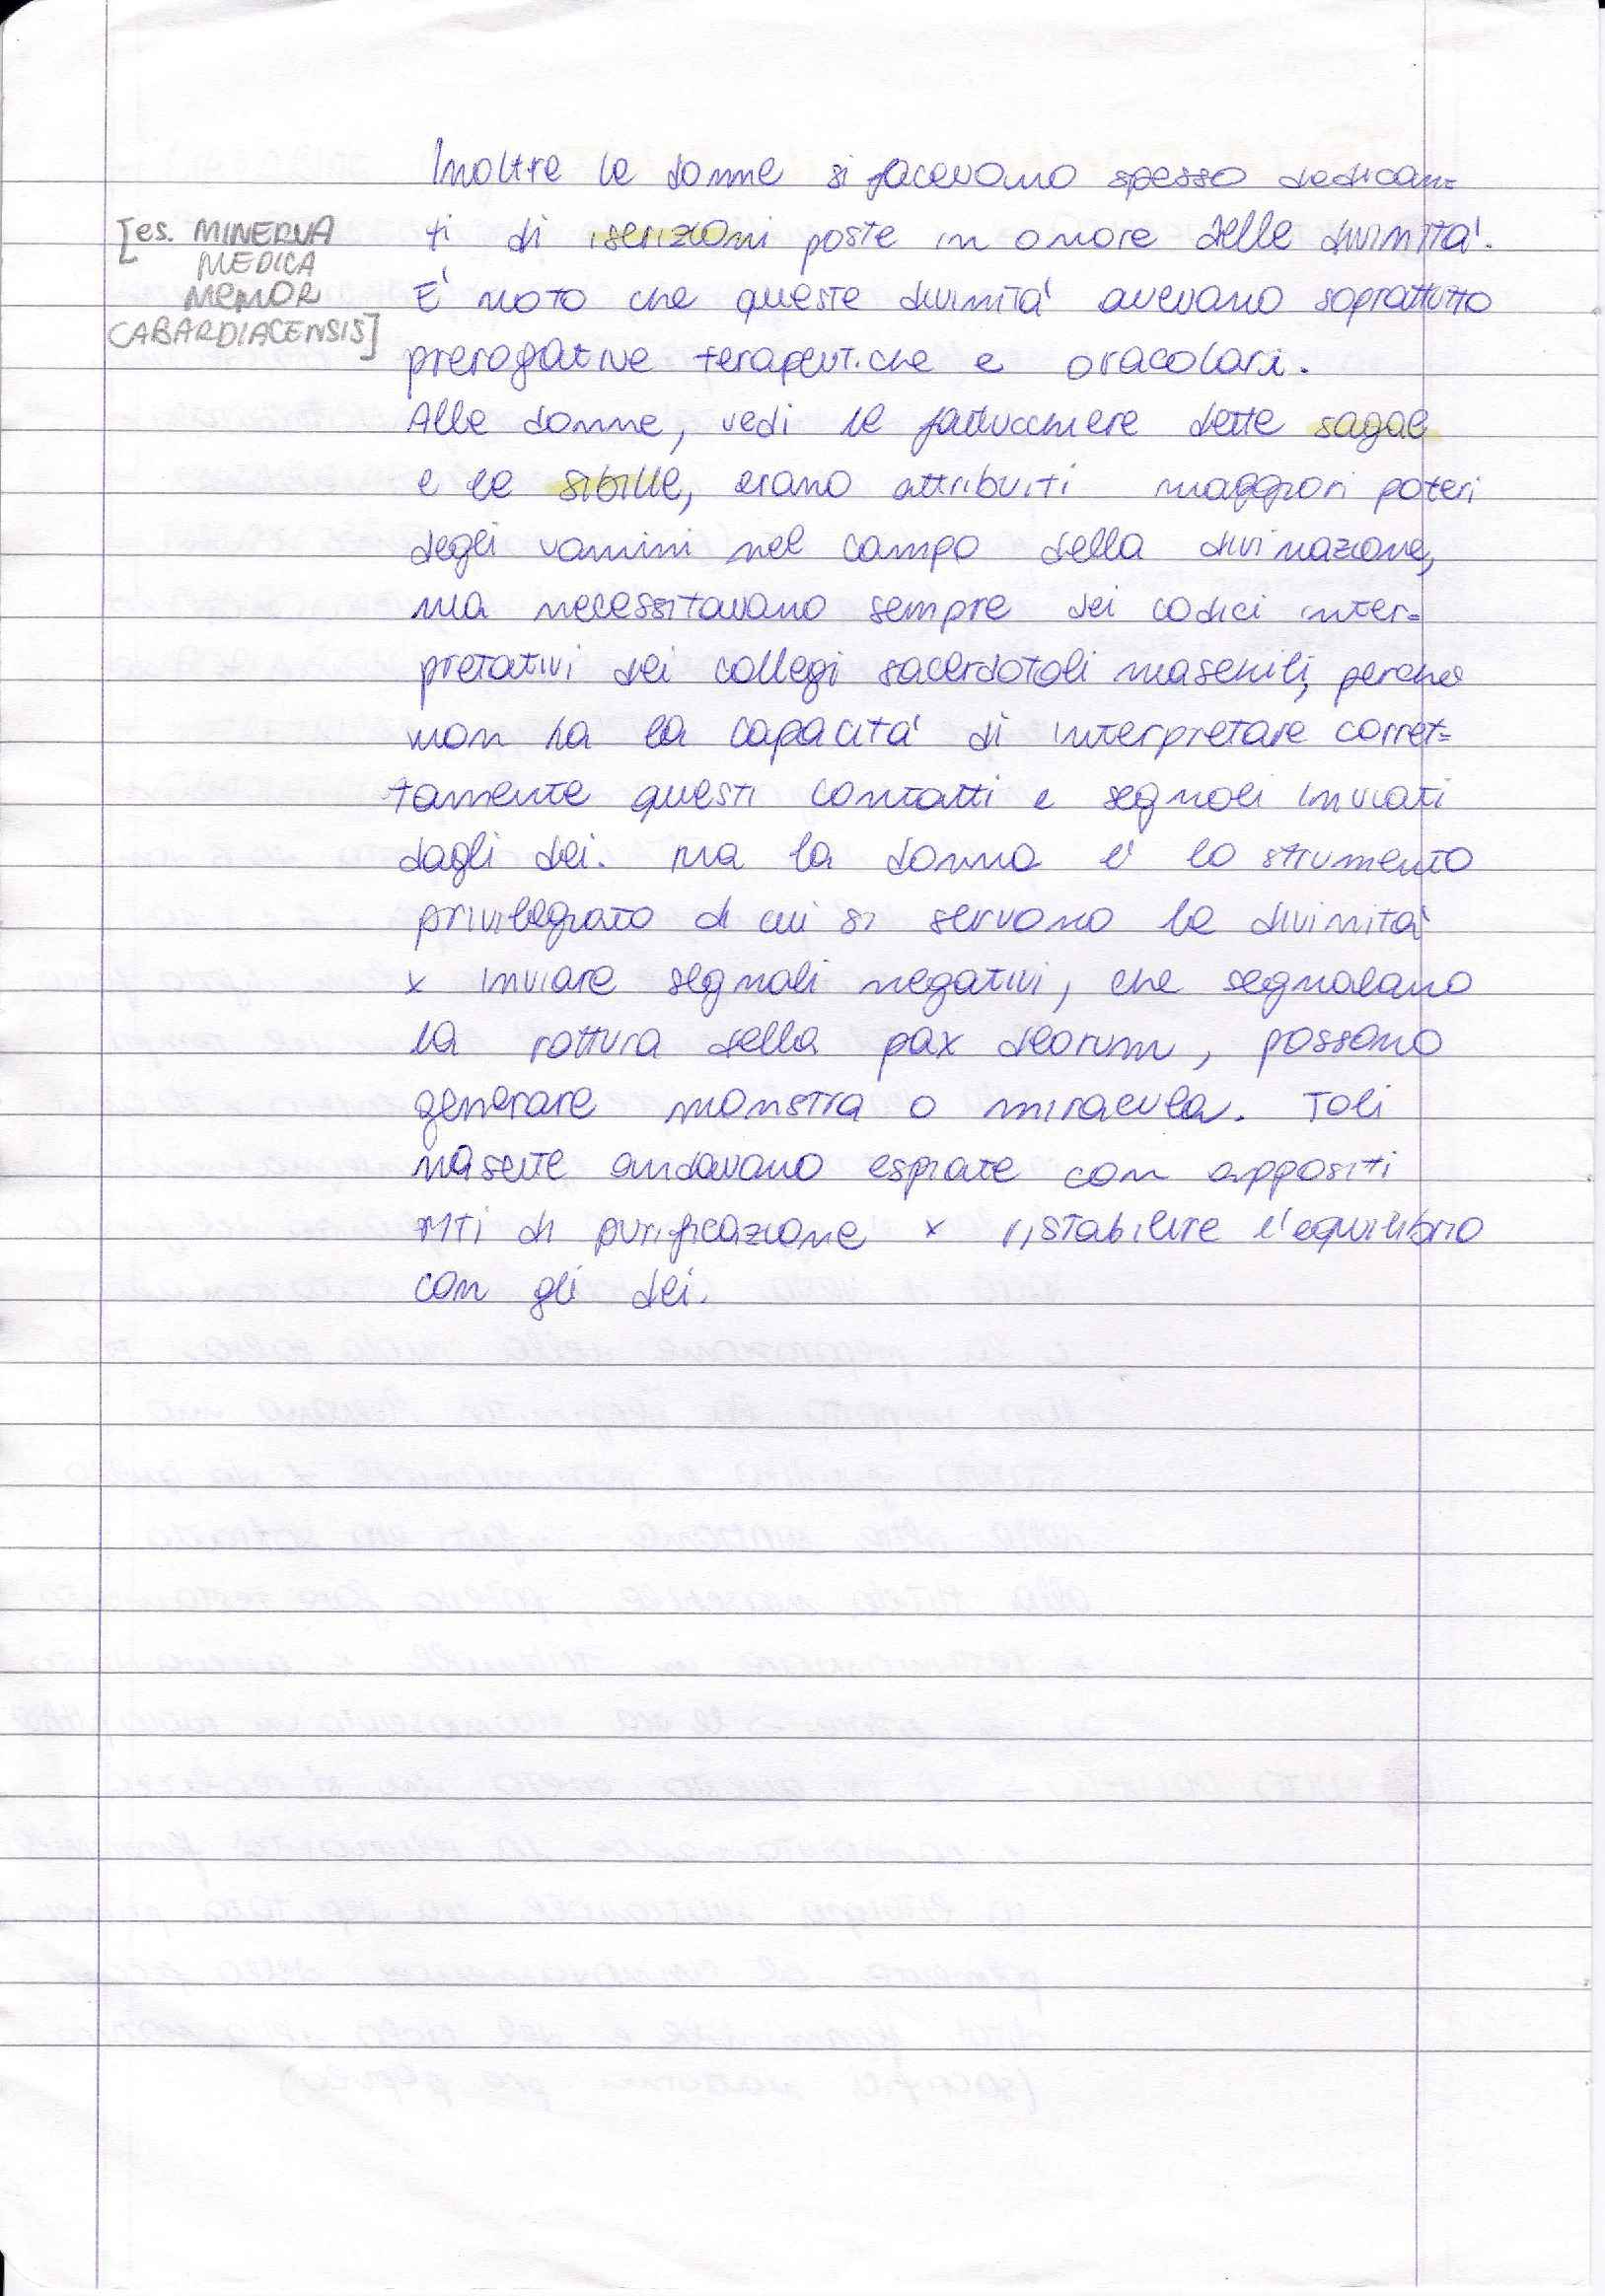 Inoltre le donne si facevano spesso dedican=
ti di iscrizioni poste in onore delle divinità.
[es. MINERVA
MEDICA
MEMOR
CABARDIACENSIS]
E' noto che queste divinità avevano soprattutto
prerogative terapeutiche e oracolari.
Alle donne, vedi le fattucchiere dette sagae
e le sibille, erano attribuiti maggiori poteri
degli uomini nel campo della divinazione,
ma necessitavano sempre dei codici inter=
pretativi dei collegi sacerdotali maschili, perché
non ha la capacità di interpretare corret=
tamente questi contatti e segnali inviati
dagli dei. Ma la donna è lo strumento
privilegiato di cui si servono le divinità
x inviare segnali negativi, che segnalano
la rottura della pax deorum, possono
generare monstra o miracula. Tali
nascite andavano espiate con appositi
riti di purificazione x ristabilire l'equilibrio
con gli dei.